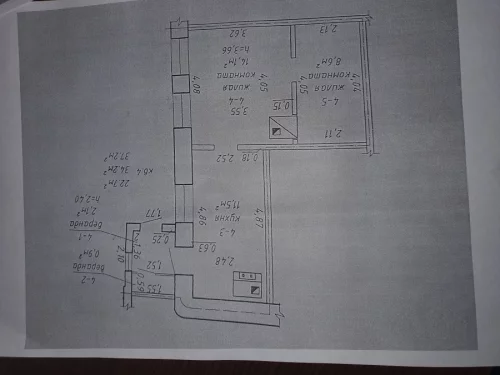 кв.4
37,2м²
34,2м²
22,7м²
h=2,40
2,1м²
Веранда
4-1
0,9м²
Веранда
4-2
1,55
0,59
1,52
1,36
2,10
0,25
1,77
2,48
0,63
4-3
Кухня
11,5м²
4,86
4,87
2,52
0,18
0,15
3,55
4-4
жилая
комната
14,1м²
h=3,66
3,62
4,08
4,05
4,05
2,11
4-5
жилая
комната
8,6м²
4,04
2,13